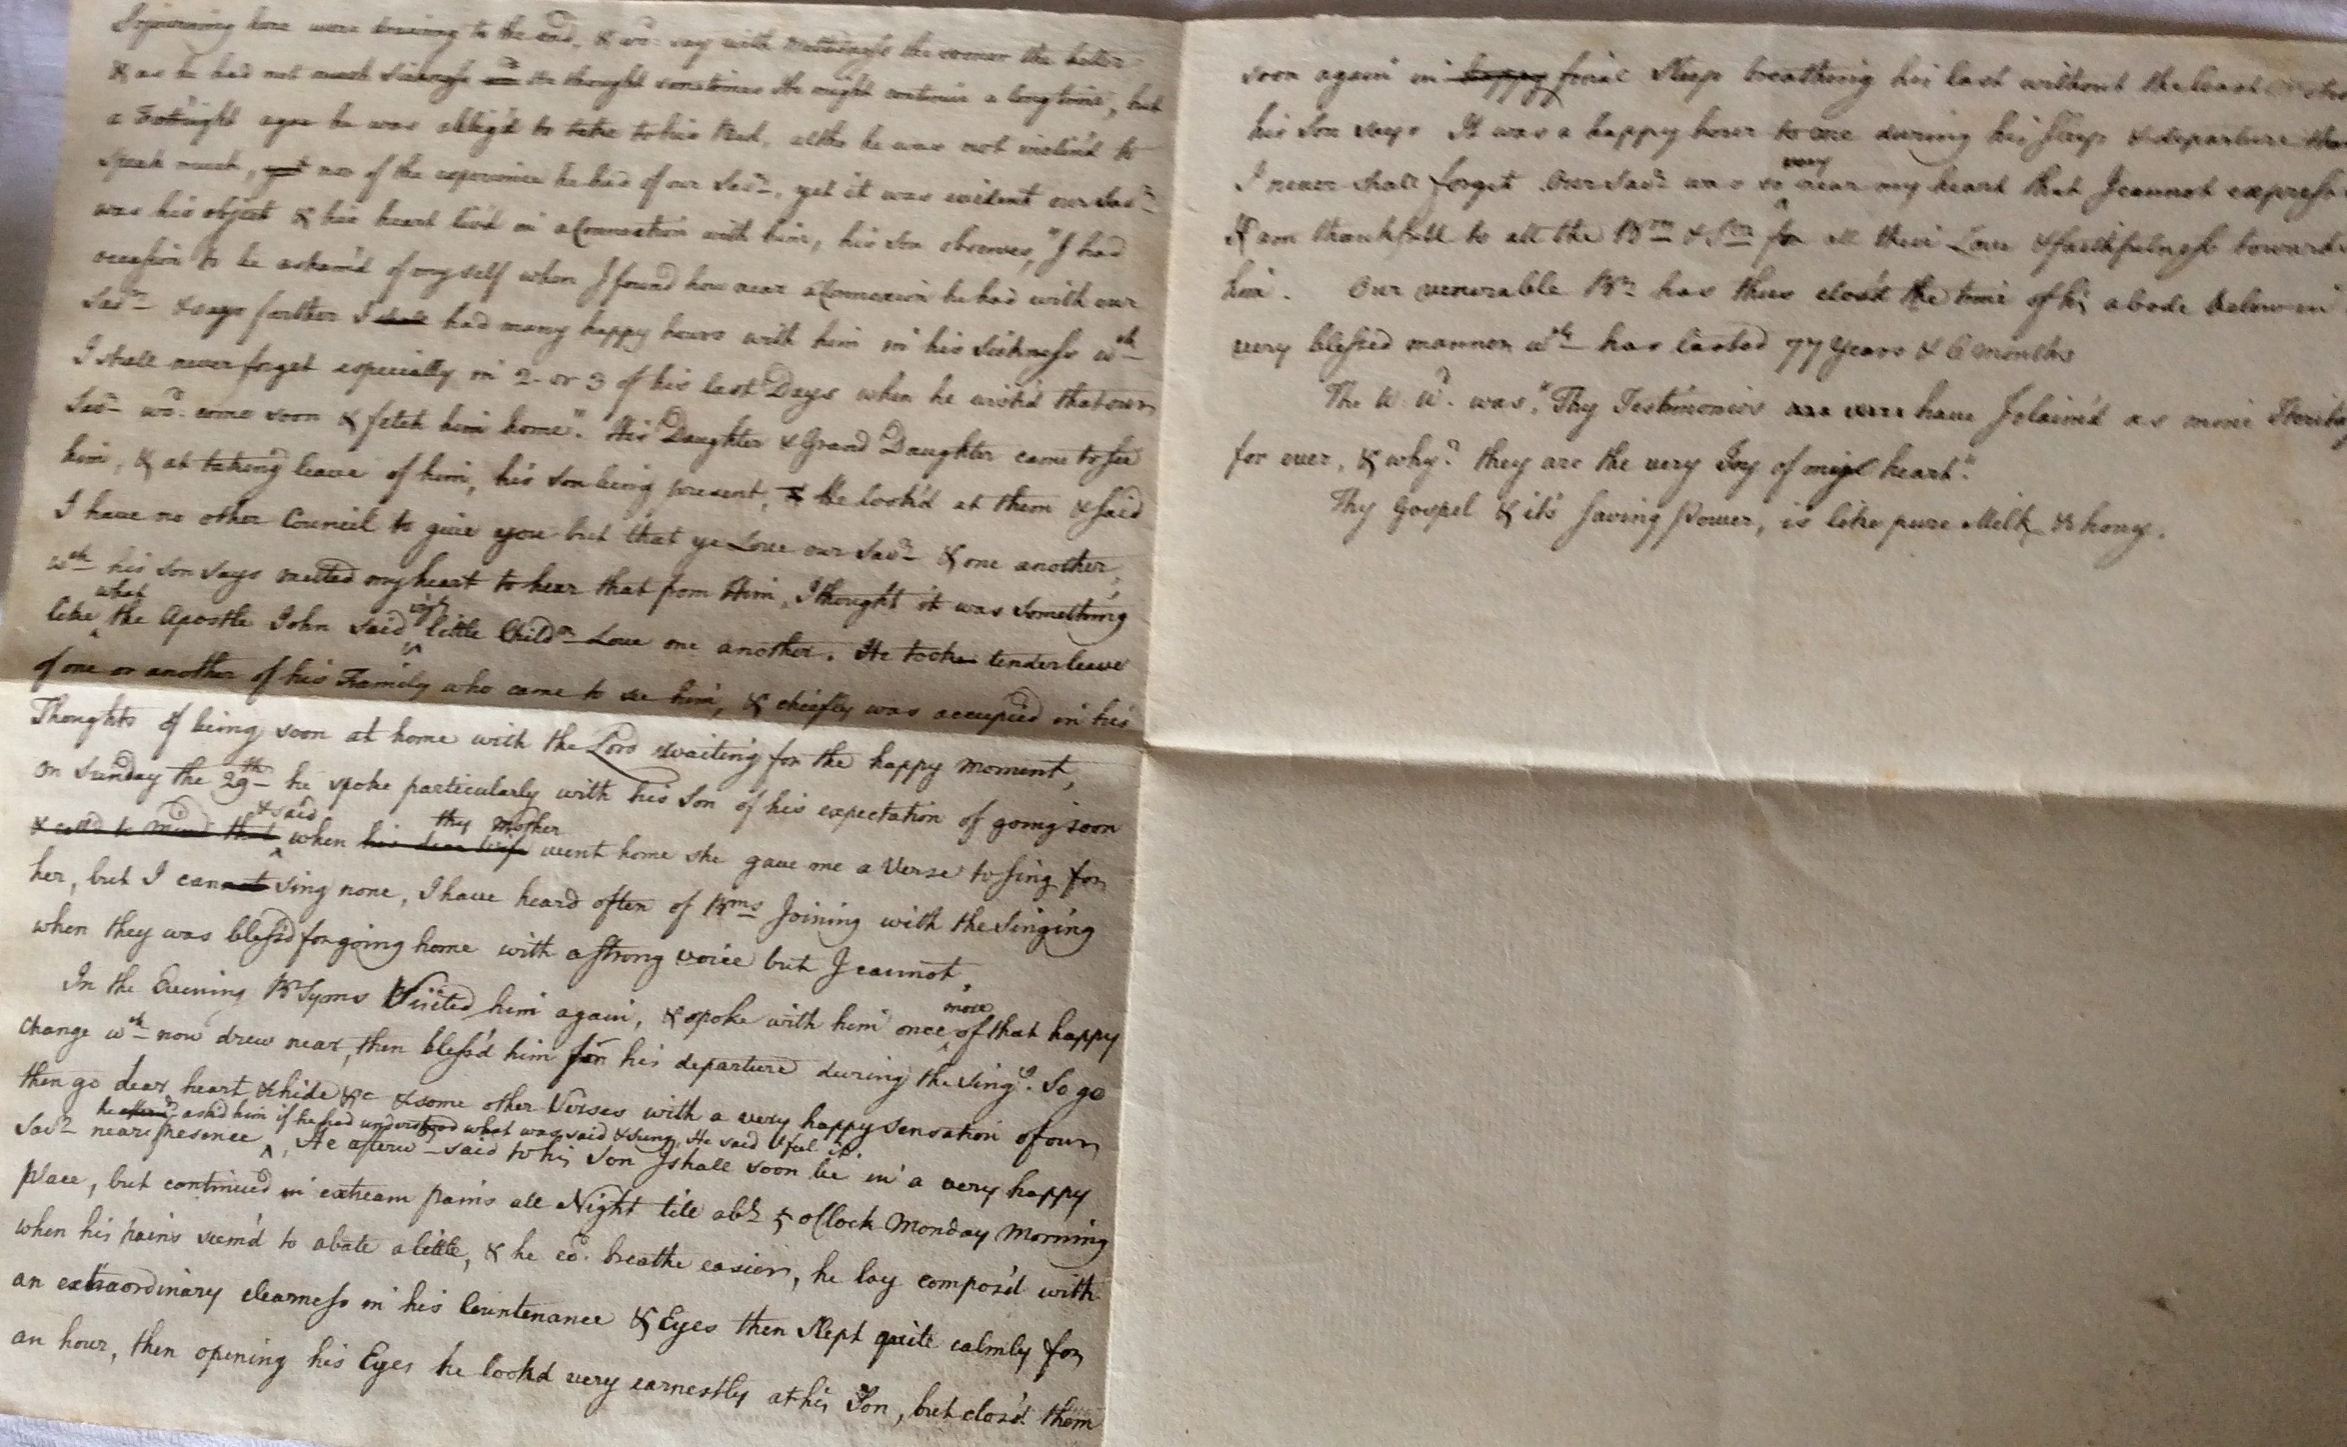 Sojourning here were drawing to the end, & wod. say with the sooner the better
& as he had not much Sickness He thought sometimes He might continue a long time, but
a Fortnight agoe he was oblig'd to take to his Bed, altho he was not inclin'd to
speak much, nor of the experience he had of our Savr., yet it was evident our Savr.
was his object & his heart liv'd in a Connection with him, his son observes, "I had
occasion to be asham'd of myself when I found how near a Connexion he had with our
Savr. & says further I had many happy hours with him in his Sickness wch.
I shall never forget especially in 2 or 3 of his last Days when he wish'd that our
Savr. wod. come soon & fetch him home". His Daughter & Grand Daughter came to see
him, & at taking leave of him, his son being present, He look'd at them & said
I have no other Council to give you but that ye Love our Savr. & one another,
wch. his son says melted my heart to hear that from Him, I thought it was something
like what the Apostle John said, viz. little Childn. Love one another. He tooke tender leave
of one or another of his Family who came to see him, & chiefly was occupied in his
Thoughts of being soon at home with the Lord waiting for the happy moment,
on Sunday the 29th. he spoke particularly with his Son of his expectation of going soon
& call'd to mind that & said when his dear Wife thy Mother went home she gave me a Verse to sing for
her, but I cannot sing none, I have heard often of Brns Joining with the Singing
when they was bless'd for going home with a strong voice but I cannot,
In the Evening Br Syms Visited him again, & spoke with him once more of that happy
Change wch. now drew near, then bless'd him for his departure during the Singg. So go
then go dear heart & hide &c & some other Verses with a very happy Sensation of our
he asked him if he had understood what was said & sung, He said I feel it
Savr. near presence, He afterwd. said to his Son I shall soon be in a very happy
Place, but continued in extream pains all Night till abt. 5 oClock Monday Morning
when his pains seem'd to abate a little, & he cod. breathe easier, he lay compos'd with
an extraordinary clearness in his Countenance & Eyes then slept quite calmly for
an hour, then opening his Eyes he look'd very earnestly at his Son, but clos'd them
soon again in happy final Sleep breathing his last without the least
his Son says It was a happy hour to me during his Sleep & departure
I never shall forget. Our Savr. was so very near my heart that I cannot express
& am thankfull to all the Brn & Srn for all their Love & faithfulness towards
him. Our venerable Br. has thus clos'd the time of his abode below in
very blessed manner wch. has lasted 77 Years & 6 months
The W. Wd. was, "Thy Testimonies have I claim'd as mine
for ever, & why? they are the very Joy of my heart".
Thy Gospel & it's saving Power, is like pure Milk & hony.